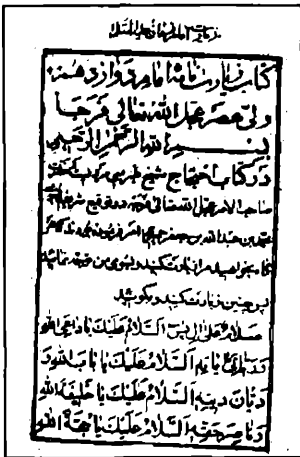 زیارت امام زمان علیه السلام
کتاب زیارت نامه امام دوازدهم
ولی عصر عجل الله تعالی فرجه
بسم الله الرحمن الرحیم
در کتاب احتجاج شیخ طبرسی
صاحب الامر عجل الله تعالی فرجه در توقیع
محمد بن عبدالله بن جعفر حمیری
بخواهید مرا زیارت کنید و بسوی من توجه نمائید
پس چنین زیارت کنید و بگوئید
سلام علی آل یس السلام علیک یا داعی الله
وربانی آیاته السلام علیک یا باب الله و
دیان دینه السلام علیک یا خلیفة الله
وناصر حقه السلام علیک یا حجة الله